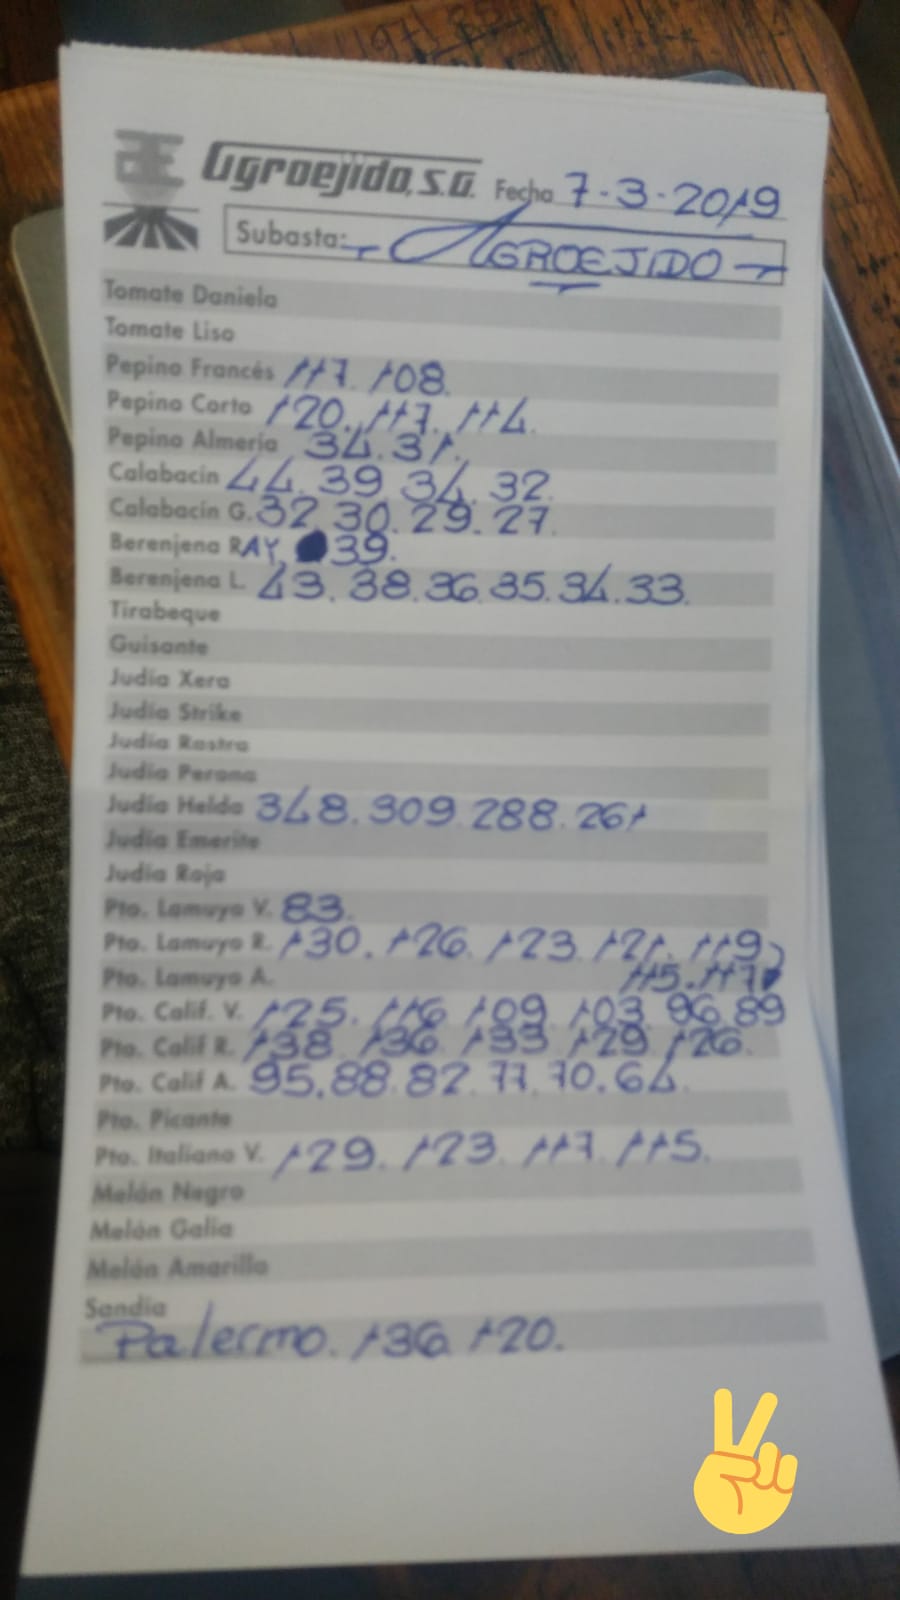 Agroejido, S.A. Fecha 7-3-2019
Subasta: AGROEJIDO
Tomate Daniela
Tomate Liso
Pepino Francés 117. 108.
Pepino Corto 120. 117. 114.
Pepino Almería 34. 31.
Calabacín 44. 39 34. 32.
Calabacín G. 32 30. 29. 27.
Berenjena RAY 39.
Berenjena L. 43. 38. 36. 35. 34. 33.
Tirabeque
Guisante
Judía Xera
Judía Strike
Judía Rastra
Judía Perona
Judía Helda 348. 309. 288. 261
Judía Emerite
Judía Roja
Pto. Lamuyo V. 83.
Pto. Lamuyo R. 130. 126. 123. 121. 119
Pto. Lamuyo A. 115. 117
Pto. Calif. V. 125. 116 109 103 96 89
Pto. Calif R. 138 136 133 129 126.
Pto. Calif A. 95. 88. 82. 77. 70. 64.
Pto. Picante
Pto. Italiano V. 129. 123. 117. 115.
Melón Negro
Melón Galia
Melón Amarillo
Sandía
Palermo. 136 120.